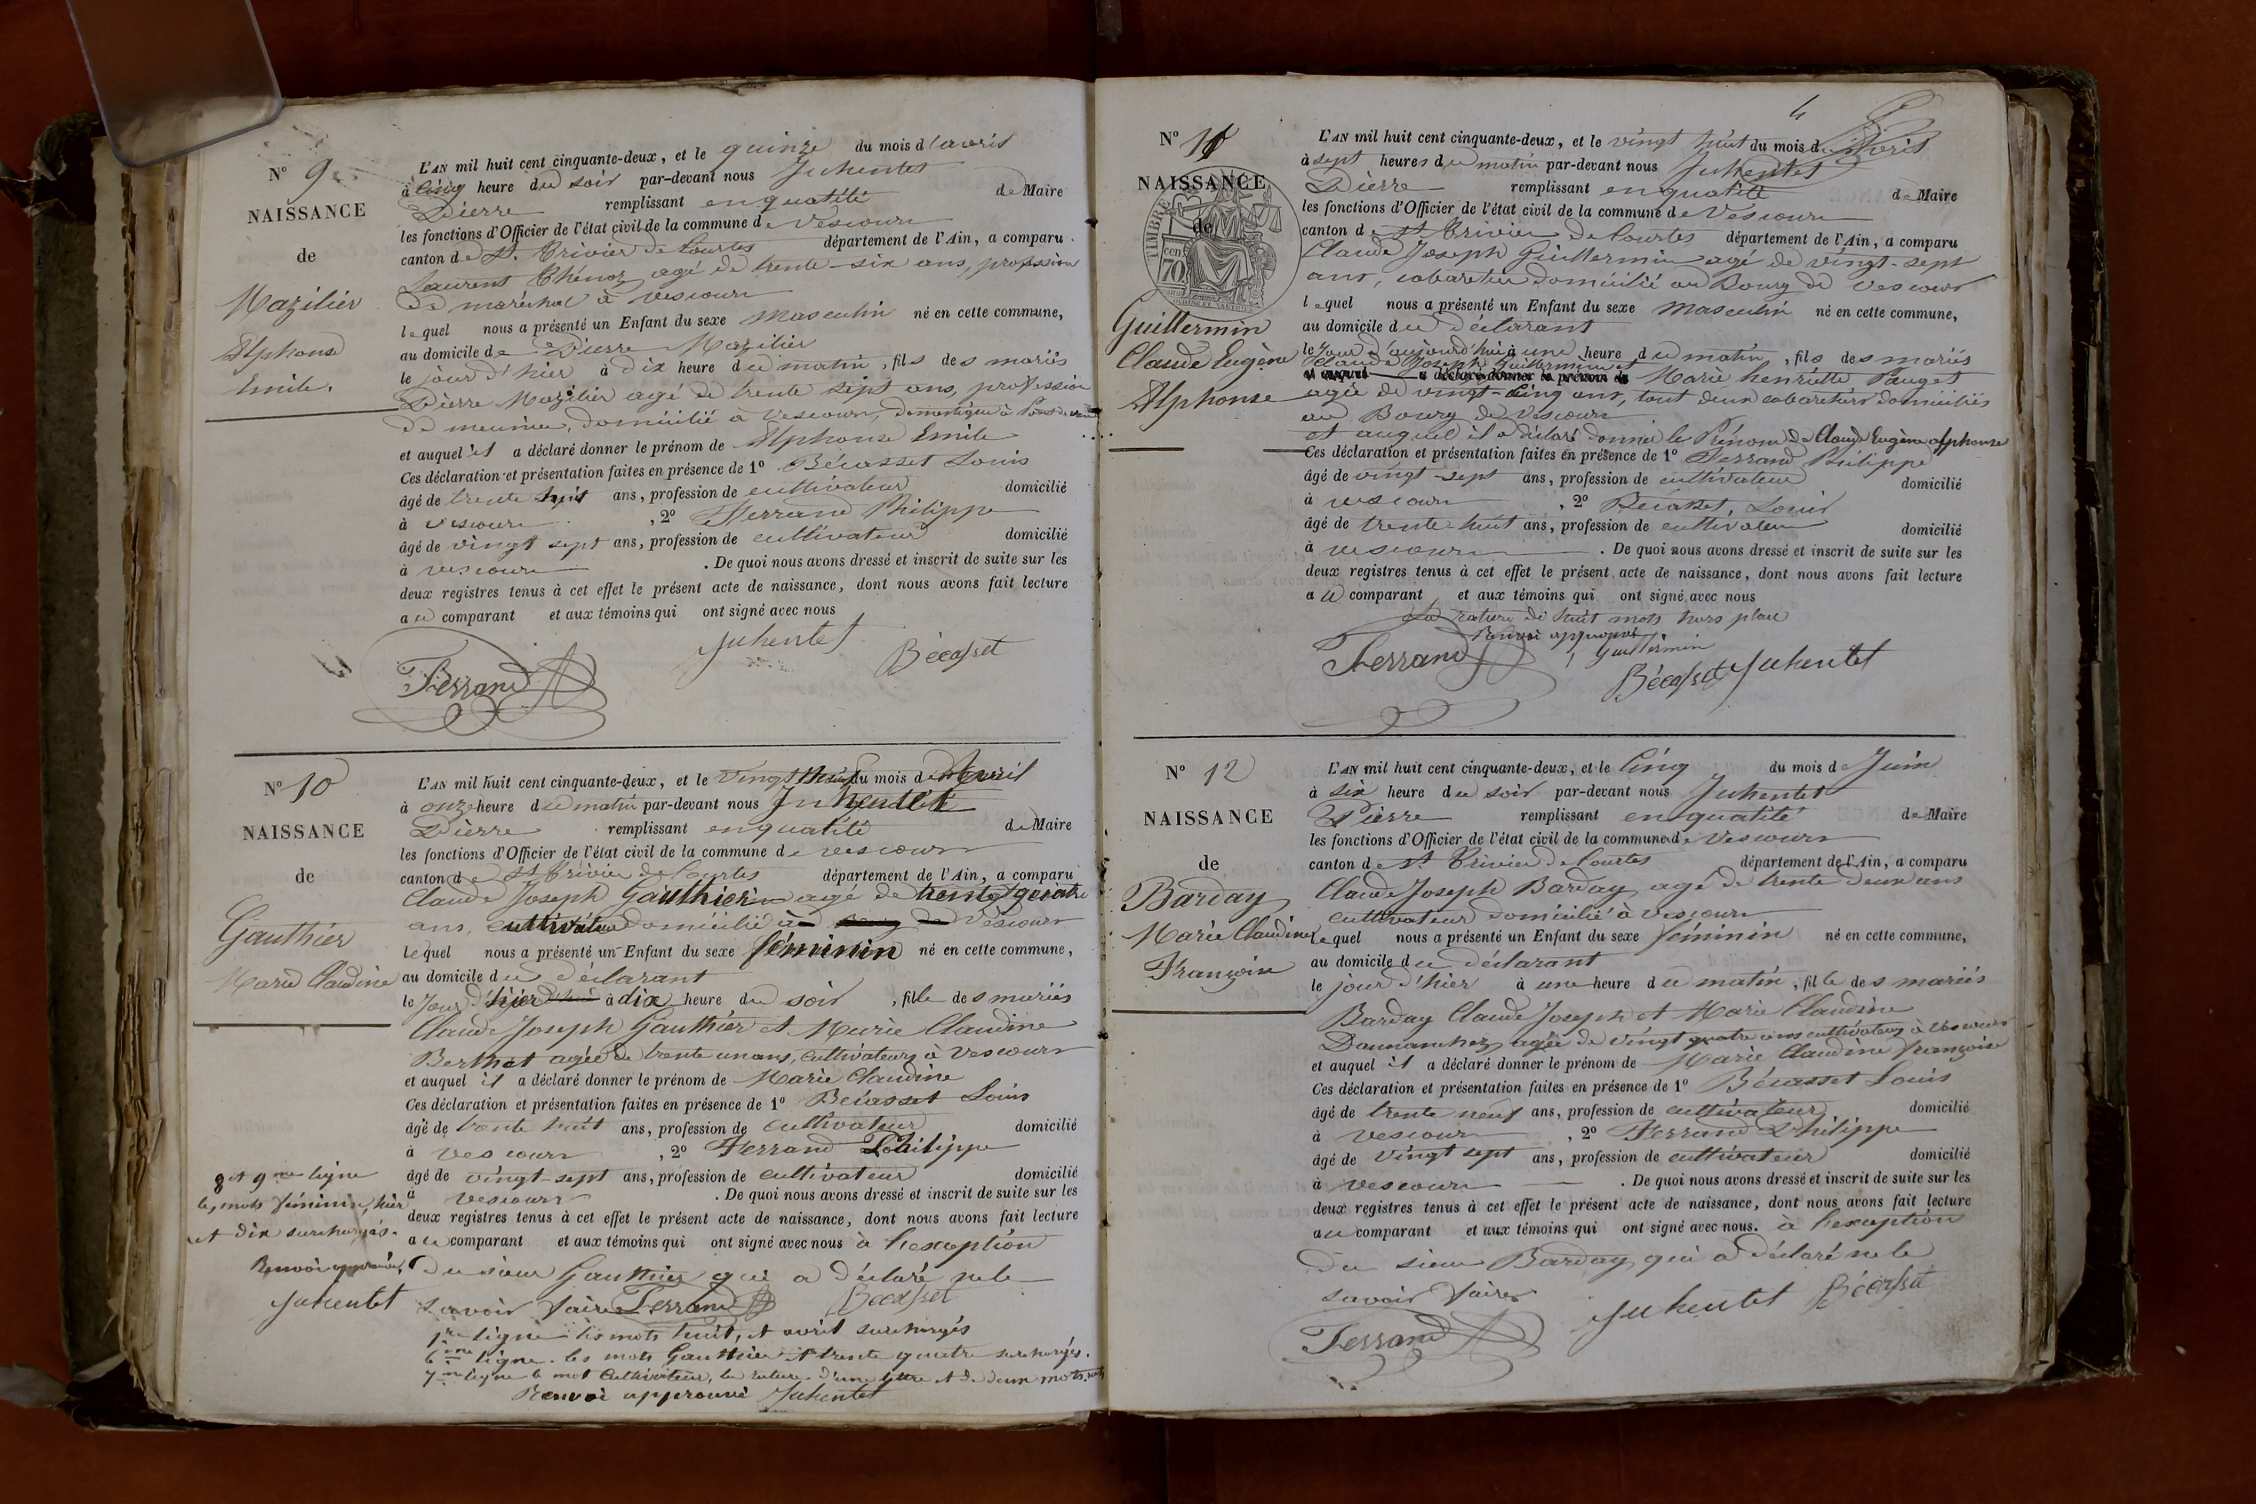 N° 9
NAISSANCE
de
Mazilier
Alphonse
Emile.
L'AN mil huit cent cinquante-deux, et le quinze du mois d'avril
à cinq heure du soir par-devant nous Juhentet
Pierre remplissant en qualité de Maire
les fonctions d'Officier de l'état civil de la commune de Vescours
canton de St. Trivier de Courtes département de l'Ain, a comparu
Laurent Thénoz agé de trente-six ans, profession
de maréchal à Vescours
lequel nous a présenté un Enfant du sexe masculin né en cette commune,
au domicile de Pierre Mazilier
le jour d'hier à dix heure du matin, fils des mariés
Pierre Mazilier agé de trente sept ans, profession
de meunier, domicilié à Vescours, domestique à
et auquel il a déclaré donner le prénom de Alphonse Emile
Ces déclaration et présentation faites en présence de 1° Bécasset Louis
âgé de trente huit ans, profession de cultivateur domicilié
à vescours, 2° Ferrand Philippe
âgé de vingt sept ans, profession de cultivateur domicilié
à vescours. De quoi nous avons dressé et inscrit de suite sur les
deux registres tenus à cet effet le présent acte de naissance, dont nous avons fait lecture
au comparant et aux témoins qui ont signé avec nous
Juhentet
Bécasset
Ferrand
N° 10
NAISSANCE
de
Gauthier
Marie Claudine
L'AN mil huit cent cinquante-deux, et le vingt huit du mois d'avril
à onze heure du matin par-devant nous Juhentet
Pierre remplissant en qualité de Maire
les fonctions d'Officier de l'état civil de la commune de vescours
canton de St Trivier de Courtes département de l'Ain, a comparu
Claude Joseph Gauthier agé de trente quatre
ans, cultivateur domicilié à Vescours
lequel nous a présenté un Enfant du sexe féminin né en cette commune,
au domicile du déclarant
le Jour d'hier à dix heure du soir, fille des mariés
Claude Joseph Gauthier et Marie Claudine
Berthet agée de trente un ans, cultivateurs à Vescours
et auquel il a déclaré donner le prénom de Marie Claudine
Ces déclaration et présentation faites en présence de 1° Bécasset Louis
âgé de trente huit ans, profession de cultivateur domicilié
à Vescours, 2° Ferrand Philippe
âgé de vingt-sept ans, profession de cultivateur domicilié
à vescours. De quoi nous avons dressé et inscrit de suite sur les
deux registres tenus à cet effet le présent acte de naissance, dont nous avons fait lecture
au comparant et aux témoins qui ont signé avec nous à l'exception
du sieur Gauthier qui a déclaré ne le
savoir faire Ferrand Bécasset
8 et 9me ligne
les mots féminin, hier
et dix surchargés.
Renvoi approuvé
Juhentet
1re ligne les mots huit, et avril surchargés
6me ligne. les mots Gauthier et trente quatre surchargés.
7me ligne le mot Cultivateur, la rature d'une lettre et de deux mots
Renvoi approuvé Juhentet
4
N° 11
NAISSANCE
de
TIMBRE
70
Guillermin
Claude Eugène
Alphonse
L'AN mil huit cent cinquante-deux, et le vingt huit du mois d'Avril
à sept heures du matin par-devant nous Juhentet
Pierre remplissant en qualité de Maire
les fonctions d'Officier de l'état civil de la commune de Vescours
canton de St Trivier de Courtes département de l'Ain, a comparu
Claude Joseph Guillermin agé de vingt-sept
ans, cabaretier domicilié au Bourg de Vescours
lequel nous a présenté un Enfant du sexe masculin né en cette commune,
au domicile du déclarant
le Jour d'aujourd'hui à une heure du matin, fils des mariés
Claude Joseph Guillermin et
et auquel a déclaré donner le prénom de Marie henriette Pauget
agée de vingt-cinq ans, tout deux cabaretiers domiciliés
au Bourg de Vescours
et auquel il a déclaré donner le Prénom de Claude Eugène alphonse
Ces déclaration et présentation faites en présence de 1° Ferrand Philippe
âgé de vingt-sept ans, profession de cultivateur domicilié
à vescours, 2° Bécasset, Louis
âgé de trente huit ans, profession de cultivateur domicilié
à vescours. De quoi nous avons dressé et inscrit de suite sur les
deux registres tenus à cet effet le présent acte de naissance, dont nous avons fait lecture
au comparant et aux témoins qui ont signé avec nous
La rature de huit mots hors place
Renvoi approuvé
Guillermin
Ferrand
Bécasset Juhentet
N° 12
NAISSANCE
de
Barday
Marie Claudine
Françoise
L'AN mil huit cent cinquante-deux, et le Cinq du mois de Juin
à six heure du soir par-devant nous Juhentet
Pierre remplissant en qualité de Maire
les fonctions d'Officier de l'état civil de la commune de Vescours
canton de St. Trivier de Courtes département de l'Ain, a comparu
Claude Joseph Barday agé de trente deux ans
cultivateur domicilié à Vescours
lequel nous a présenté un Enfant du sexe féminin né en cette commune,
au domicile du déclarant
le jour d'hier à une heure du matin, fille des mariés
Barday Claude Joseph et Marie Claudine
agée de vingt quatre ans cultivateurs à Vescours
et auquel il a déclaré donner le prénom de Marie Claudine françoise
Ces déclaration et présentation faites en présence de 1° Bécasset Louis
âgé de trente neuf ans, profession de cultivateur domicilié
à Vescours, 2° Ferrand Philippe
âgé de vingt sept ans, profession de cultivateur domicilié
à vescours. De quoi nous avons dressé et inscrit de suite sur les
deux registres tenus à cet effet le présent acte de naissance, dont nous avons fait lecture
au comparant et aux témoins qui ont signé avec nous. à l'exception
du sieur Barday qui a déclaré ne le
savoir faire
Ferrand Juhentet Bécasset